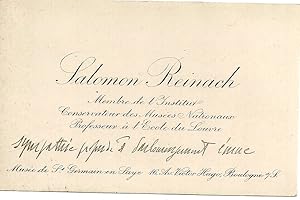 Salomon Reinach
Membre de l'Institut
Conservateur des Musées Nationaux
Professeur à l'Ecole du Louvre
sympathie profonde
Musée de St Germain en Laye 16, Av. Victor Hugo, Boulogne s/S.